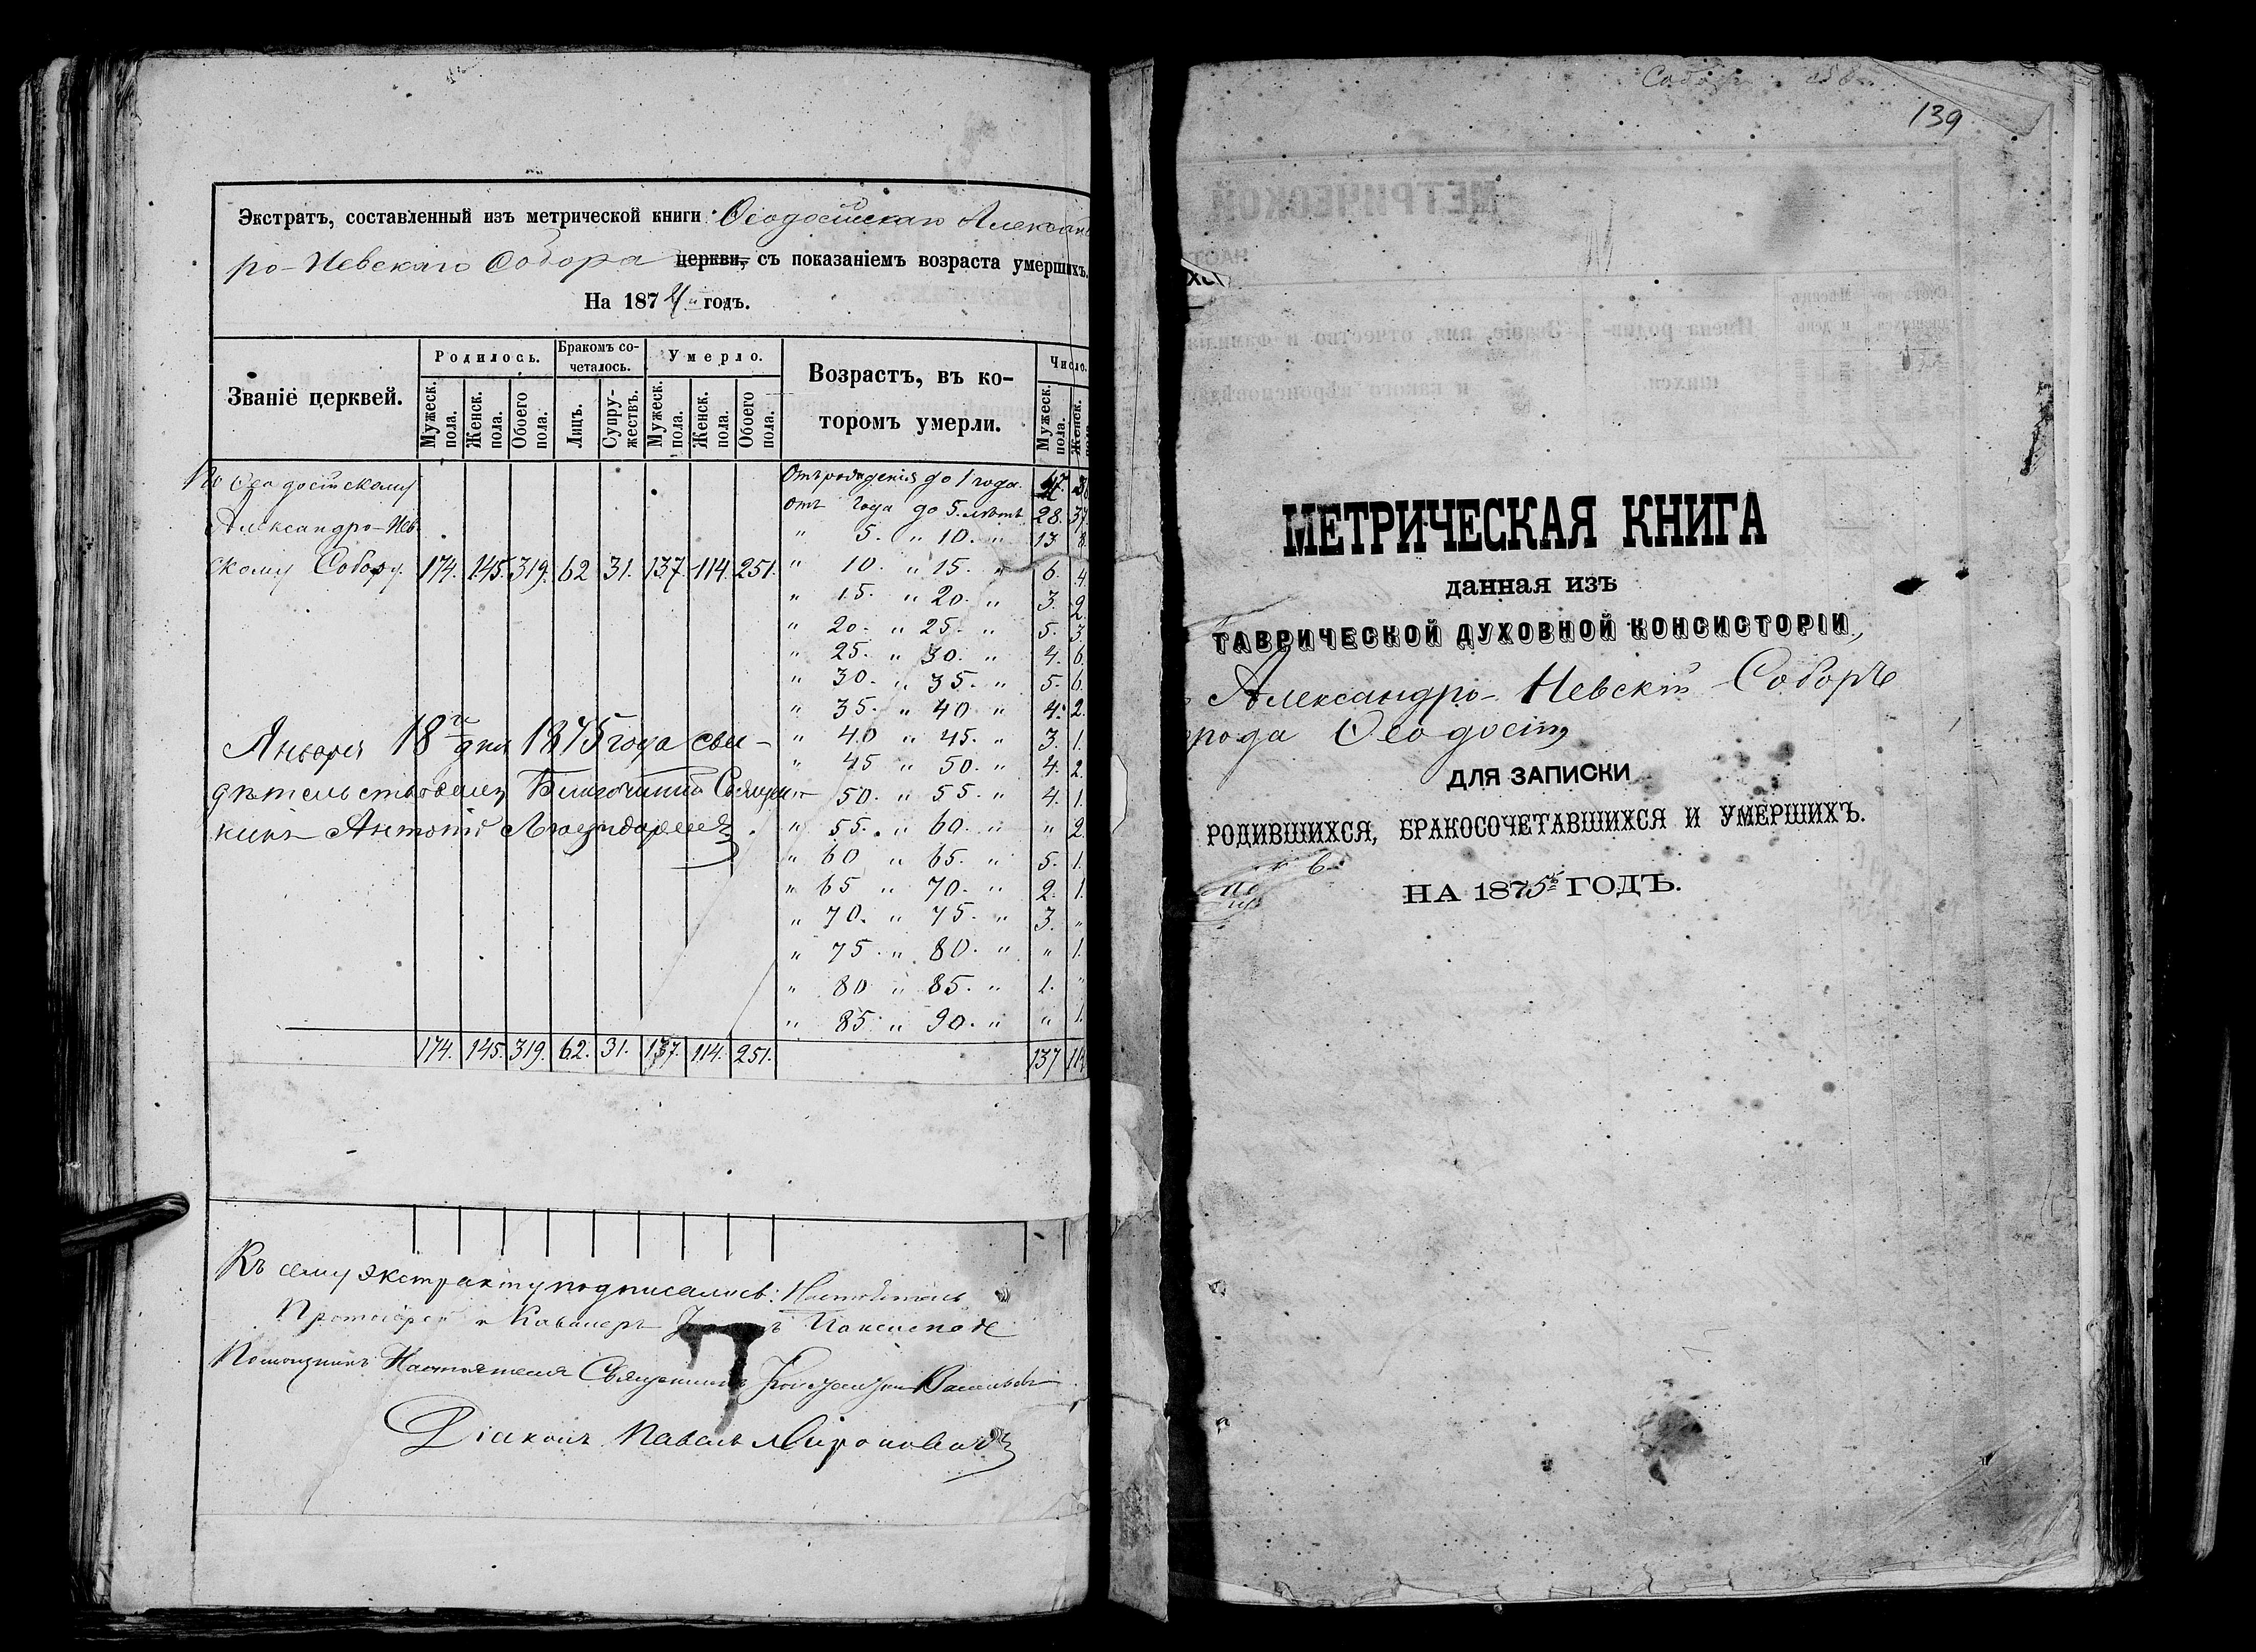 Экстратъ, составленный изъ метрической книги Ѳеодосійскаго Алексан
ро-Невскаго Собора церкви, съ показаніемъ возраста умершихъ.
На 1874 годъ.
Званіе церквей.
Родилось.
Бракомъ со-
четалось.
Умерло.
Возрастъ, въ ко-
торомъ умерли.
Число.
Мужеск. пола.
Женск. пола.
Обоего пола.
Лицъ.
Супру-
жествъ.
Мужеск. пола.
Женск. пола.
Обоего пола.
Мужеск. пола.
Женск.
По Ѳеодосійскому
Александро-Нев-
скому Собору. 174. 145. 319. 62 31. 137. 114. 251.
Отъ рожденія до 1 года. 47.
отъ года до 5. лѣтъ 28. 37.
" 5. " 10. " 13. 8.
" 10. " 15. " 6. 4.
" 15. " 20. " 3. 2.
" 20. " 25. " 5. 3.
" 25. " 30. " 4. 6.
" 30. " 35. " 5. 6.
" 35. " 40 " 4. 2.
" 40 " 45. " 3. 1.
" 45 " 50. " 4. 2.
" 50. " 55. " 4. 1.
" 55. " 60. " " 2.
" 60 " 65. " 5. 1.
" 65 " 70. " 2. 1.
" 70. " 75. " 3. "
" 75. " 80. " " 1.
" 80 " 85. " 1. "
" 85 " 90. " " 1.
Января 18го дня 1875 года сви-
дѣтельствовалъ Благочинный Священ-
никъ Антоній
174. 145. 319. 62. 31. 137. 114. 251. 137 11
Къ сему экстракту подписались: Настоятель
Протоіерей и Кавалеръ
Помощникъ Настоятеля Священникъ Константинъ Васильевъ
Діаконъ Павелъ Мироновичъ
139
МЕТРИЧЕСКАЯ КНИГА
данная изъ
ТАВРИЧЕСКОЙ ДУХОВНОЙ КОНСИСТОРІИ,
Александро-Невскій Соборъ
рода Ѳеодосіи
ДЛЯ ЗАПИСКИ
РОДИВШИХСЯ, БРАКОСОЧЕТАВШИХСЯ И УМЕРШИХЪ.
НА 1875й ГОДЪ.